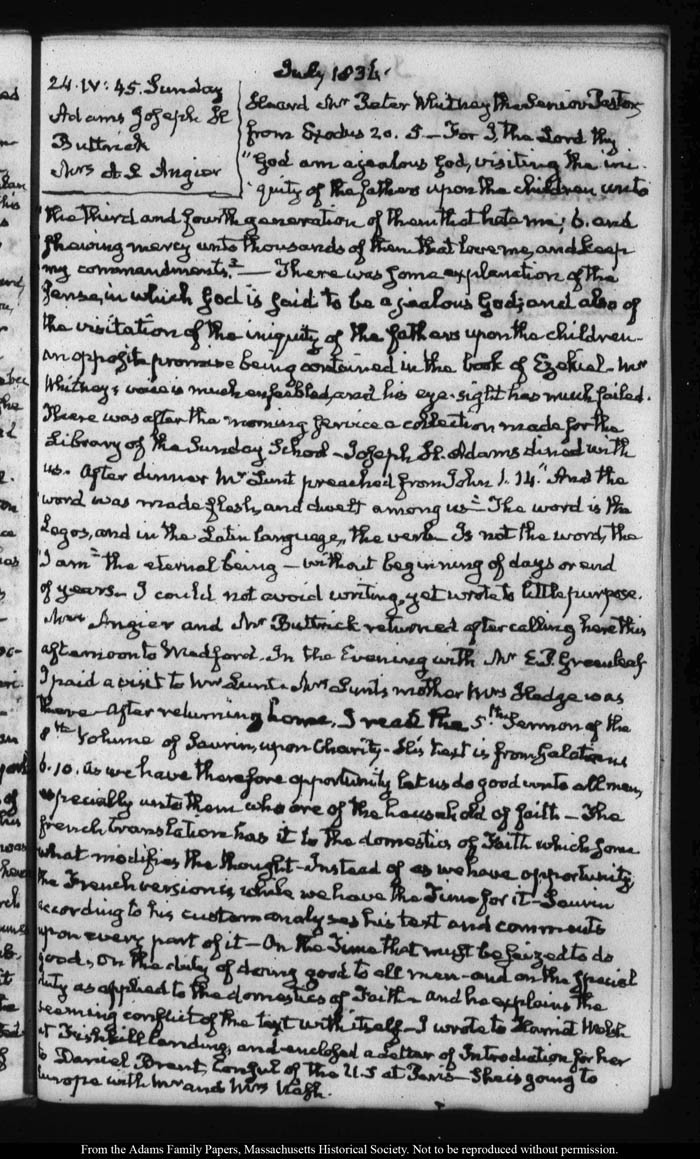 July 1836.
24. IV: 45. Sunday
Adams Joseph H
Buttrick
Mrs A L Angier
Heard Mr Peter Whitney the Senior Pastor,
from Exodus 20. 5 — For I, the Lord thy
"God am a jealous God, visiting the ini-
"quity of the fathers upon the children unto
"the third and fourth generation of them that hate me; 6. and
shewing mercy unto thousands of them that love me, and keep
my commandments." — There was some explanation of the
sense, in which God is said to be a jealous God; and also of
the visitation of the iniquity of the fathers upon the children —
an opposite promise being contained in the book of Ezekiel — Mr
Whitney's voice is much enfeebled, and his eye-sight has much failed.
There was after the morning service a collection made for the
Library of the Sunday School — Joseph H. Adams dined with
us. After dinner Mr Lunt preached from John 1. 14. "And the
word was made flesh, and dwelt among us" — The word is the
Logos, and in the Latin language, the verb — Is not the word, the
"I am" the eternal being — without beginning of days or end
of years — I could not avoid writing, yet wrote to little purpose.
Mrs Angier and Mr Buttrick returned after calling here this
afternoon to Medford. In the Evening with Mr E. P. Greenleaf
I paid a visit to Mr Lunt. Mrs Lunt's mother Mrs Hedge was
there — After returning home, I read the 5th Sermon of the
8th Volume of Saurin, upon Charity — His text is from Galatians
6. 10. As we have therefore opportunity let us do good unto all men,
especially unto them who are of the household of faith — The
french translation has it to the domestics of Faith which some
what modifies the thought — Instead of as we have opportunity,
the French version is, while we have the Time for it — Saurin
according to his custom analyses his text and comments
upon every part of it — On the Time that must be seized to do
good, on the duty of doing good to all men — and on the special
duty as applied to the domestics of Faith — and he explains the
seeming conflict of the text with itself — I wrote to Harriet Welsh
at Fishkill landing, and enclosed a Letter of Introduction for her
to Daniel Brent, Consul of the U.S at Paris — She is going to
Europe with Mr and Mrs
From the Adams Family Papers, Massachusetts Historical Society. Not to be reproduced without permission.